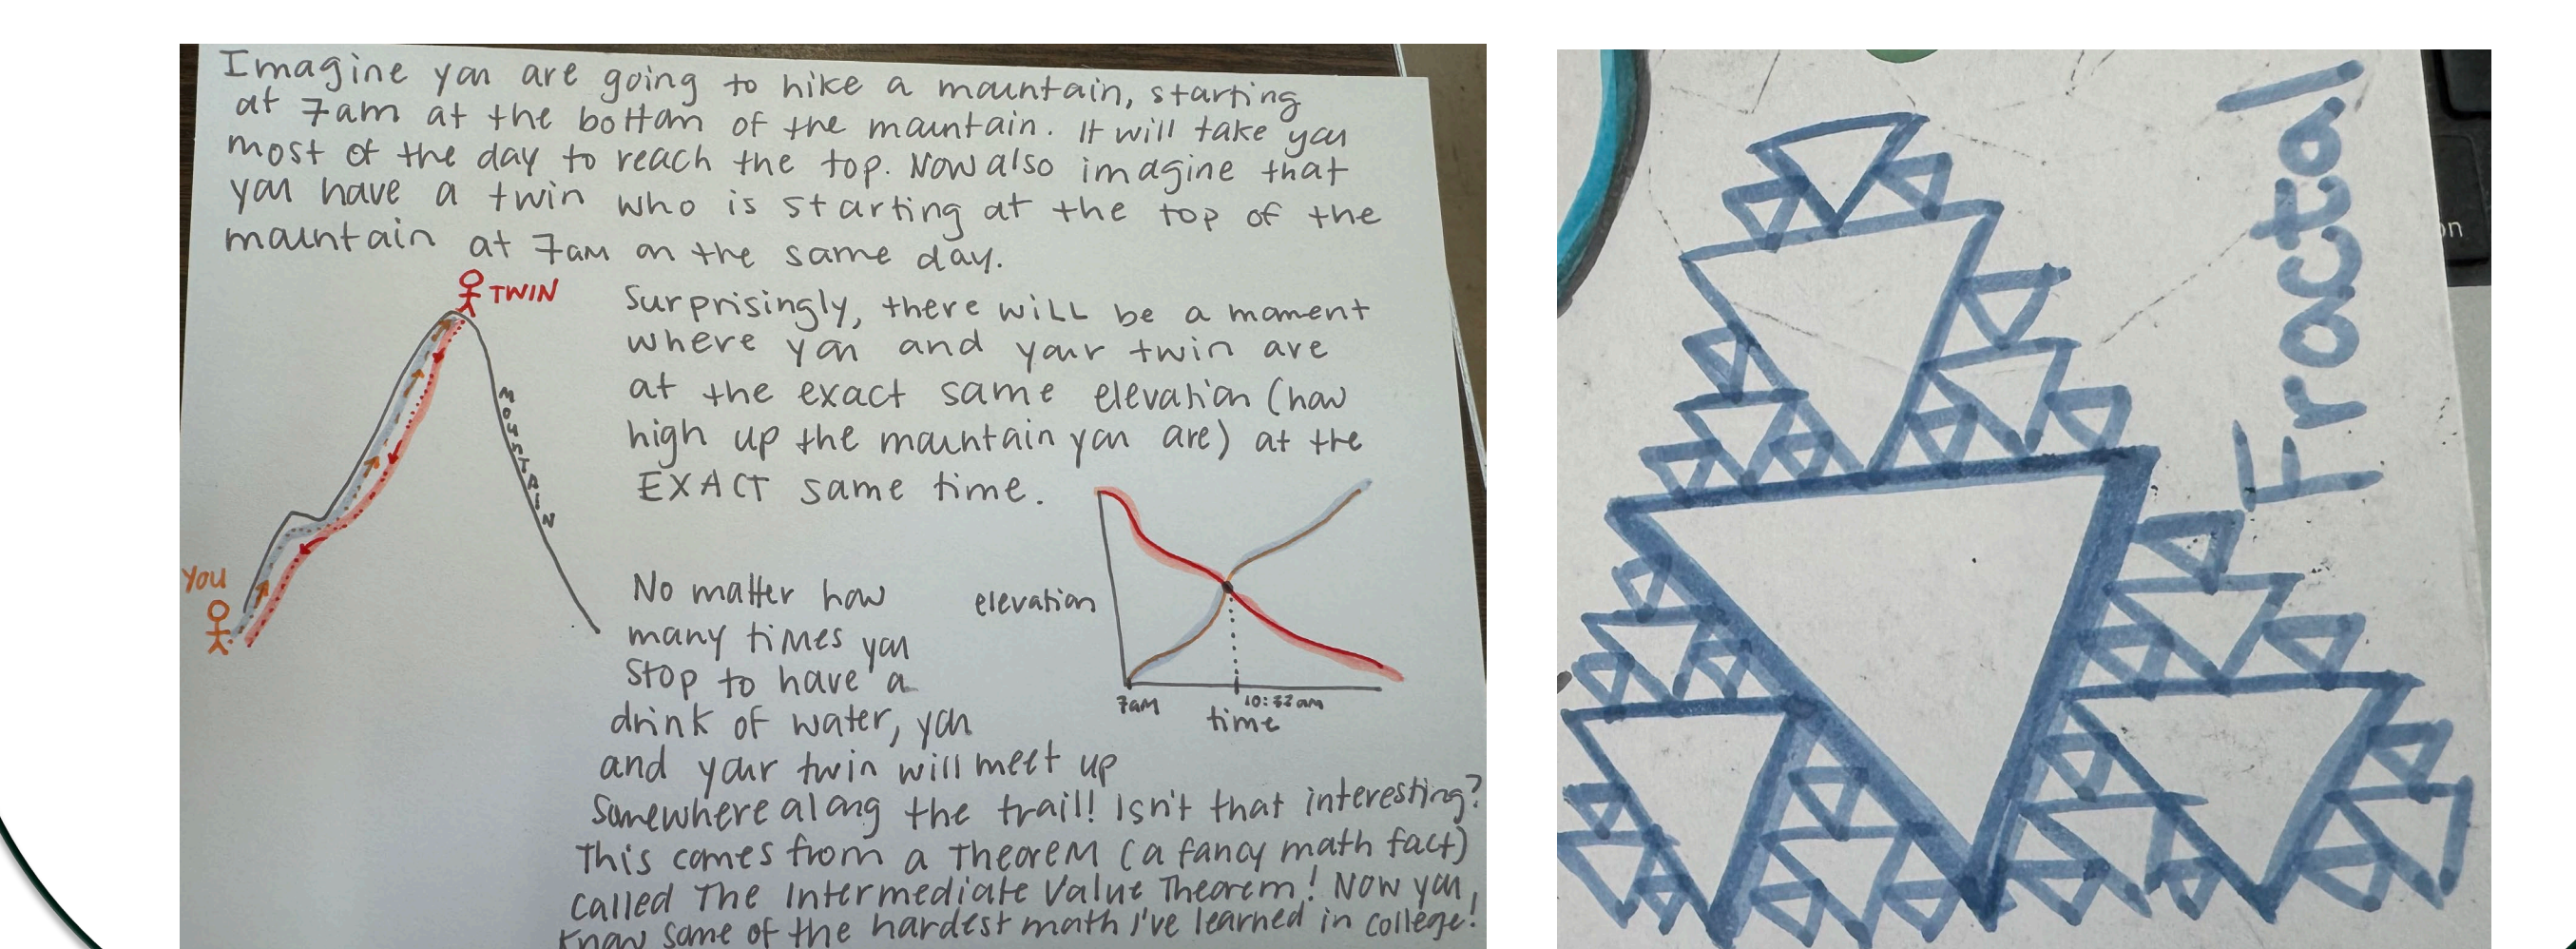 Imagine you are going to hike a mountain, starting
at 7am at the bottom of the mountain. It will take you
most of the day to reach the top. Now also imagine that
you have a twin who is starting at the top of the
mountain at 7am on the same day.
TWIN
Surprisingly, there will be a moment
where you and your twin are
at the exact same elevation (how
high up the mountain you are) at the
EXACT same time.
MOUNTAIN
YOU
No matter how
many times you
stop to have a
drink of water, you
and your twin will meet up
somewhere along the trail! Isn't that interesting?
This comes from a Theorem (a fancy math fact)
called The Intermediate Value Theorem! Now you
know some of the hardest math I've learned in college!
elevation
7am
10:32am
time
Fractal
on